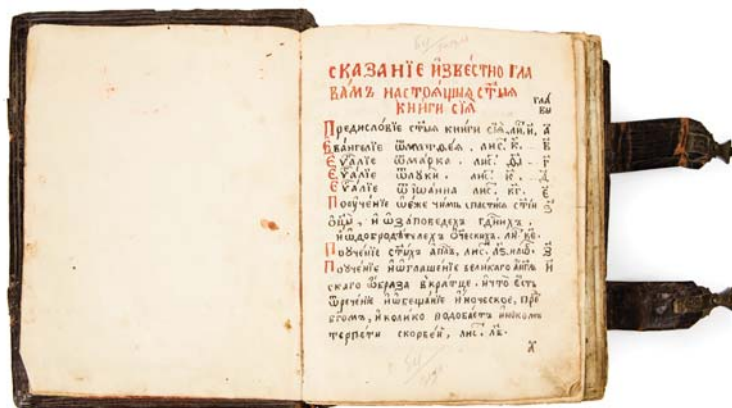 СКАЗАНЇЕ И҆ЗВѢ́СТНО ГЛА
ВА́МЪ НАСТОѦ́ЩЫѦ СТ҃ЫѦ
КНИ́ГИ СЇѦ̀
ГЛА́
ВЫ
Предисло́вїе ст҃ы́ѧ кни́ги сїѧ̀, ли́. и҃, а҃
Є҆ва́нгелїе ѿ матѳе́ѧ. лис. к҃. в҃
Є҆ѵⷢ҇а́лїе ѿ ма́рка. лис. г҃
Є҆ѵⷢ҇а́лїе ѿ лꙋкѝ. лис. к҃. д҃
Є҆ѵⷢ҇а́лїе ѿ і҆ѡа́нна лис. кг҃. є҃
Поꙋче́нїе ѡ҆ е́же чи́мъ спасти́сѧ ст҃и ѕ҃
ѻ҆ц҃ы̀, и҆ ѡ҆ за́поведехъ гдⷭ҇нихъ.
и҆ ѡ҆ добродѣ́телехъ ѻ҆ч҃ескихъ. ли. ке҃.
Поꙋче́нїе ст҃ы́хъ а҆пⷭ҇лъ, лис. з҃
Поꙋче́нїе и҆ ѡ҆глаше́нїе вели́каго а҆́гг҃ль и҃
скаго ѡ҆́браза вкра́тце. и҆ что̀ є҆́сть
ѿрече́нїе и҆ ѡ҆беща́нїе и҆́ноческое, пре́
бг҃омъ, и҆ коли́ко подоба́етъ и҆́нокомъ
терпе́ти скорбе́й, лис. лв҃.